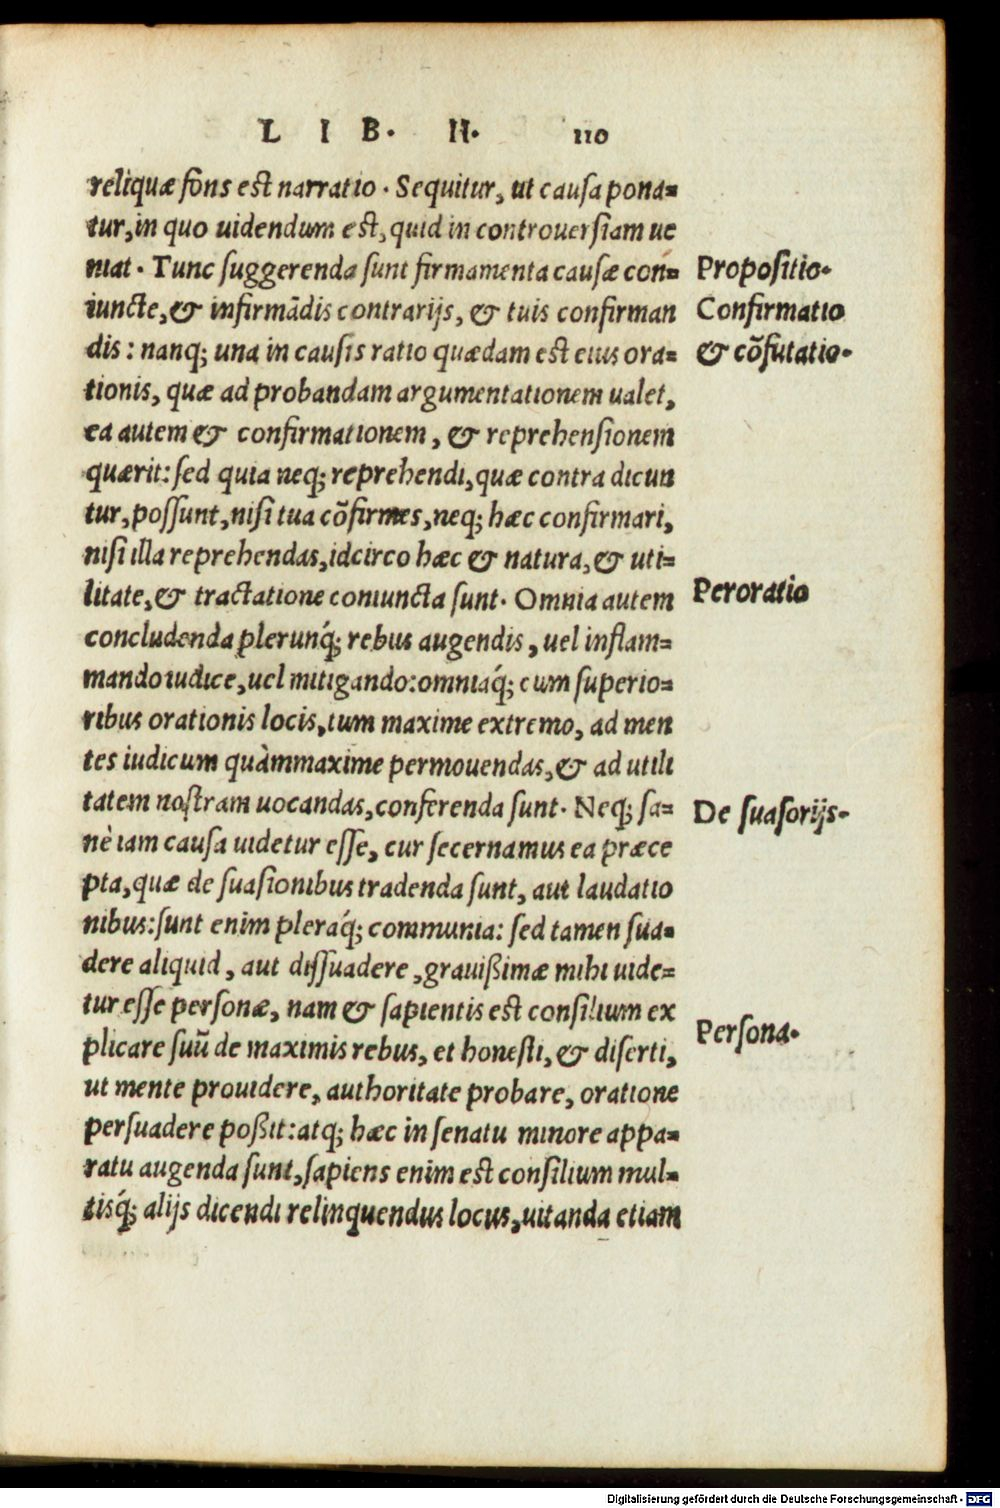 LIB. II. 110
reliquæ fons est narratio. Sequitur, ut causa pona=
tur, in quo uidendum est, quid in controuersiam ue
niat. Tunc suggerenda sunt firmamenta causæ con=
Propositio.
iuncte, & infirmādis contrarijs, & tuis confirman
Confirmatio
dis: nanq; una in causis ratio quædam est eius ora=
& cōfutatio.
tionis, quæ ad probandam argumentationem ualet,
ea autem & confirmationem, & reprehensionem
quærit: sed quia neq; reprehendi, quæ contra dicun
tur, possunt, nisi tua cōfirmes, neq; hæc confirmari,
nisi illa reprehendas, idcirco hæc & natura, & uti=
litate, & tractatione coniuncta sunt. Omnia autem
Peroratio
concludenda plerunq́; rebus augendis, uel inflam=
mando iudice, uel mitigando: omniaq́; cum superio=
ribus orationis locis, tum maxime extremo, ad men
tes iudicum quàmmaxime permouendas, & ad utili
tatem nostram uocandas, conferenda sunt. Neq; sa=
De suasorijs.
nè iam causa uidetur esse, cur secernamus ea præce
pta, quæ de suasionibus tradenda sunt, aut laudatio
nibus: sunt enim pleraq́; communia: sed tamen sua=
dere aliquid, aut dissuadere, grauißimæ mihi uide=
tur esse personæ, nam & sapientis est consilium ex
Persona.
plicare suū de maximis rebus, et honesti, & diserti,
ut mente prouidere, authoritate probare, oratione
persuadere poßit: atq; hæc in senatu minore appa=
ratu augenda sunt, sapiens enim est consilium mul=
tisq́; alijs dicendi relinquendus locus, uitanda etiam
Digitalisierung gefördert durch die Deutsche Forschungsgemeinschaft - DFG